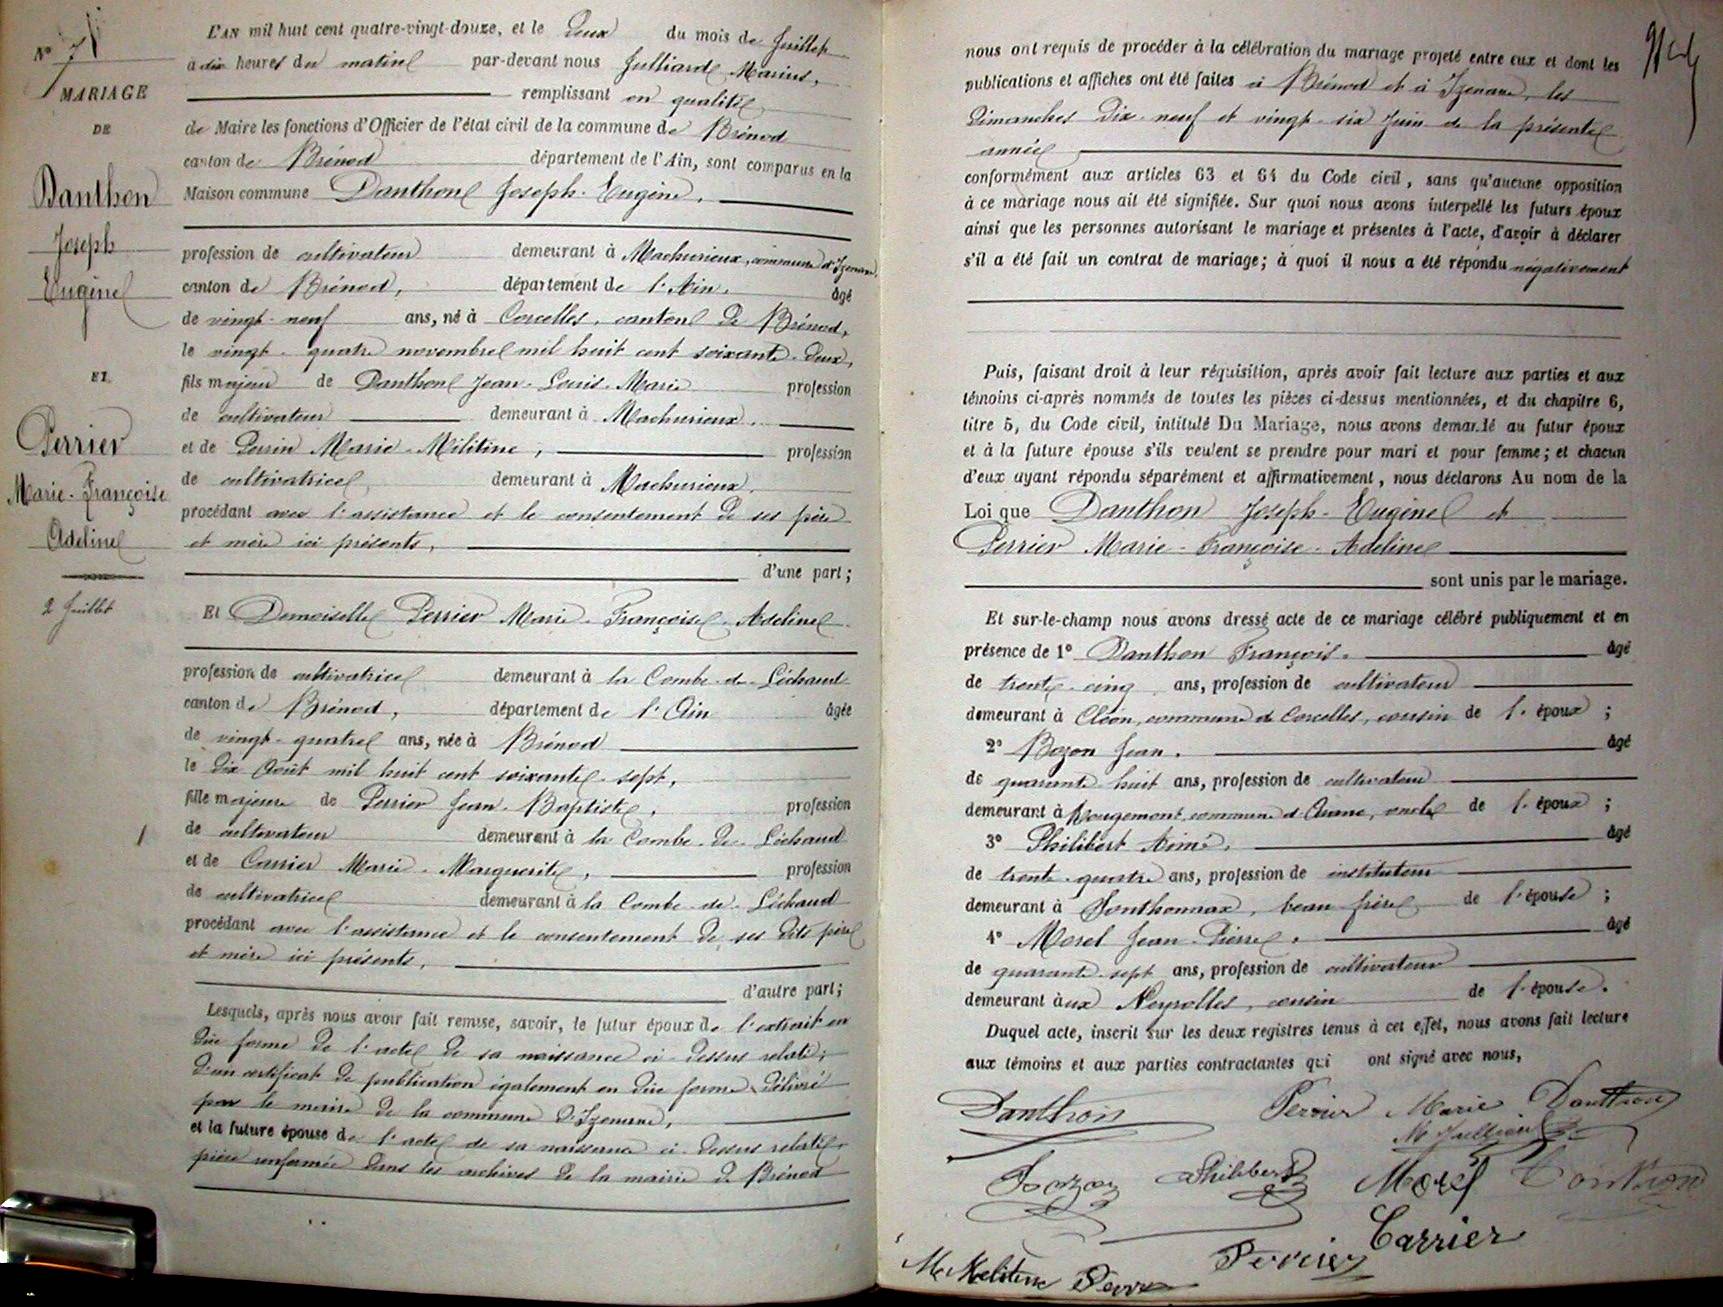 N° 7
MARIAGE
DE
Danthon
Joseph
Eugène
ET
Perrier
Marie-Françoise
Adeline
2 Juillet
L'AN mil huit cent quatre-vingt-douze, et le deux du mois de Juillet
à dix heures du matin par-devant nous Julliard Marius,
remplissant en qualité
de Maire les fonctions d'Officier de l'état civil de la commune de Brénod
canton de Brénod département de l'Ain, sont comparus en la
Maison commune Danthon Joseph-Eugène,
profession de cultivateur demeurant à Machurieux, commune d'Izenave
canton de Brénod, département de l'Ain. âgé
de vingt-neuf ans, né à Corcelles, canton de Brénod,
le vingt-quatre novembre mil huit cent soixante-deux,
fils majeur de Danthon Jean-Louis-Marie profession
de cultivateur demeurant à Machurieux,
et de Perrin Marie-Militine, profession
de cultivatrice demeurant à Machurieux,
procédant avec l'assistance et le consentement de ses père
et mère ici présents,
d'une part;
Et Demoiselle Perrier Marie-Françoise-Adeline
profession de cultivatrice demeurant à la Combe-de-Léchaud
canton de Brénod, département de l'Ain âgée
de vingt-quatre ans, née à Brénod
le dix Août mil huit cent soixante-sept,
fille majeure de Perrier Jean-Baptiste, profession
de cultivateur demeurant à la Combe-de-Léchaud
et de Carrier Marie-Marguerite, profession
de cultivatrice demeurant à la Combe-de-Léchaud
procédant avec l'assistance et le consentement de ses dits père
et mère ici présents,
d'autre part;
Lesquels, après nous avoir fait remise, savoir, le futur époux de l'extrait en
due forme de l'acte de sa naissance ci-dessus relaté;
d'un certificat de publication également en due forme délivré
par le maire de la commune d'Izenave,
et la future épouse de l'acte de sa naissance ci-dessus relatée,
pièce renfermée dans les archives de la mairie de Brénod
nous ont requis de procéder à la célébration du mariage projeté entre eux et dont les
publications et affiches ont été faites à Brénod et à Izenave, les
Dimanches dix-neuf et vingt-six Juin de la présente
année
conformément aux articles 63 et 64 du Code civil, sans qu'aucune opposition
à ce mariage nous ait été signifiée. Sur quoi nous avons interpellé les futurs époux
ainsi que les personnes autorisant le mariage et présentes à l'acte, d'avoir à déclarer
s'il a été fait un contrat de mariage; à quoi il nous a été répondu négativement
Puis, faisant droit à leur réquisition, après avoir fait lecture aux parties et aux
témoins ci-après nommés de toutes les pièces ci-dessus mentionnées, et du chapitre 6,
titre 5, du Code civil, intitulé Du Mariage, nous avons demandé au futur époux
et à la future épouse s'ils veulent se prendre pour mari et pour femme; et chacun
d'eux ayant répondu séparément et affirmativement, nous déclarons Au nom de la
Loi que Danthon Joseph-Eugène et
Perrier Marie-Françoise-Adeline
sont unis par le mariage.
Et sur-le-champ nous avons dressé acte de ce mariage célébré publiquement et en
présence de 1° Danthon François. âgé
de trente-cinq ans, profession de cultivateur
demeurant à Cléon, commune de Corcelles, cousin de l'époux;
2° Bozon Jean. âgé
de quarante huit ans, profession de cultivateur
demeurant à Rougemont, commune d'Aranc, oncle de l'époux;
3° Philibert Aimé, âgé
de trente-quatre ans, profession de instituteur
demeurant à Sonthonnax, beau frère de l'épouse;
4° Morel Jean-Pierre. âgé
de quarante-sept ans, profession de cultivateur
demeurant à ux Neyrolles, cousin de l'épouse.
Duquel acte, inscrit sur les deux registres tenus à cet effet, nous avons fait lecture
aux témoins et aux parties contractantes qui ont signé avec nous,
Danthon Perrier Marie Danthon
M Julliard
Bozon Philibert Morel Danthon
Carrier
M Melitine Perrin Perrier